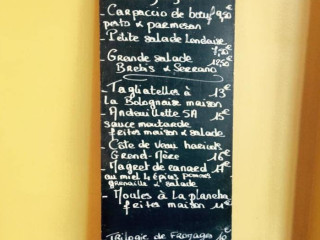 - Carpaccio de bœuf 9,50
pesto & parmesan
- Petite salade Landaise
7,20€
- Grande salade
Brebis & Serrano 12,50
- Tagliatelles à 13€
La Bolognaise maison
- Andouillette 5A 15€
sauce moutarde
frites maison & salade
- Côte de veau haricots
Grand-Mère 16€
- Magret de canard 17€
au miel 4 épices pommes
grenaille & salade
- Moules à La plancha
frites maison 11€
Trilogie de Fromages